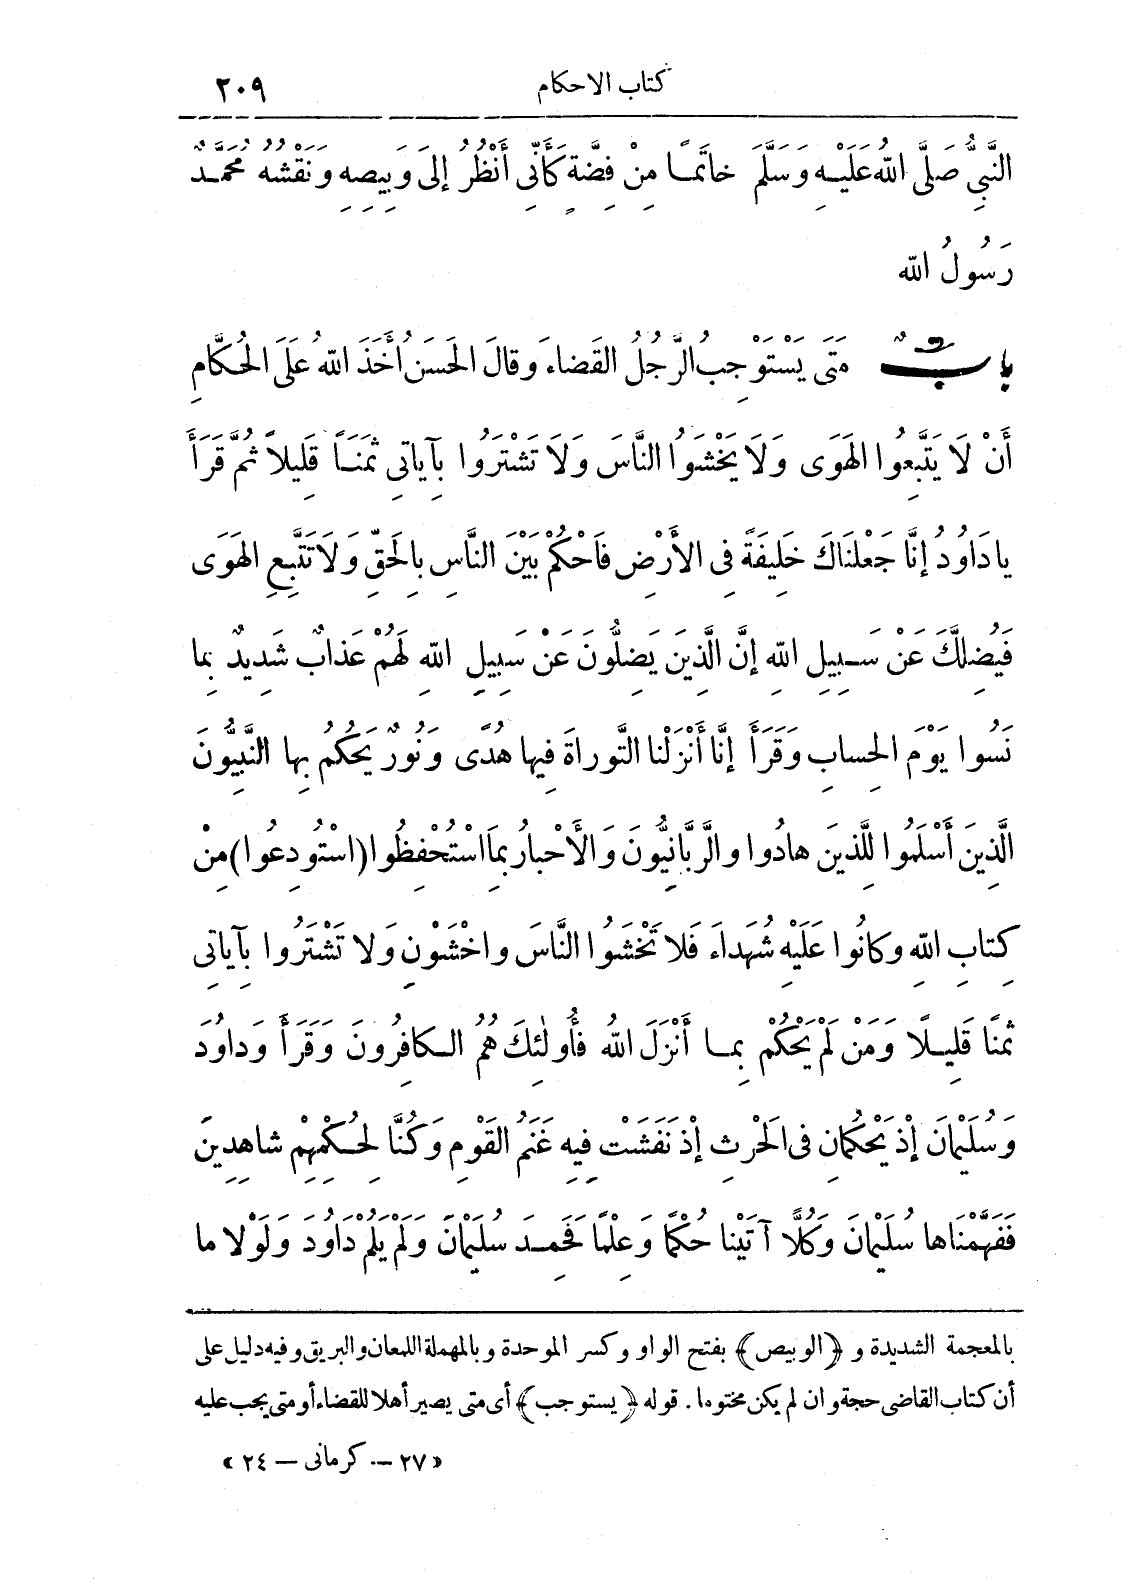 كتاب الاحكام ٢٠٩
النَّبِيُّ صَلَّى اللهُ عَلَيْهِ وَسَلَّمَ خاتَمًا مِنْ فِضَّةٍ كَأَنِّى أَنْظُرُ إِلَى وَبِيصِهِ وَنَقْشُهُ مُحَمَّدٌ
رَسُولُ الله
بابٌ مَتَى يَسْتَوْجِبُ الرَّجُلُ القَضاءَ وَقالَ الحَسَنُ أَخَذَ اللهُ عَلَى الحُكَّامِ
أَنْ لَا يَتَّبِعُوا الهَوَى وَلَا يَخْشَوُا النَّاسَ وَلَا تَشْتَرُوا بِآياتِى ثَمَنًا قَلِيلاً ثُمَّ قَرَأَ
يا دَاوُدُ إِنَّا جَعَلْنَاكَ خَلِيفَةً فِى الأَرْضِ فَاحْكُمْ بَيْنَ النَّاسِ بِالحَقِّ وَلَا تَتَّبِعِ الهَوَى
فَيُضِلَّكَ عَنْ سَبِيلِ اللهِ إِنَّ الَّذِينَ يَضِلُّونَ عَنْ سَبِيلِ اللهِ لَهُمْ عَذابٌ شَدِيدٌ بِما
نَسُوا يَوْمَ الحِسابِ وَقَرَأَ إِنَّا أَنْزَلْنا التَّوراةَ فِيها هُدًى وَنُورٌ يَحْكُمُ بِها النَّبِيُّونَ
الَّذِينَ أَسْلَمُوا لِلَّذِينَ هادُوا والرَّبَّانِيُّونَ وَالأَحْبارُ بِمَا اسْتُحْفِظُوا (اسْتُودِعُوا) مِنْ
كِتابِ اللهِ وكانُوا عَلَيْهِ شُهَداءَ فَلا تَخْشَوُا النَّاسَ واخْشَوْنِ وَلا تَشْتَرُوا بِآياتِى
ثَمَنًا قَلِيلًا وَمَنْ لَمْ يَحْكُمْ بِمـا أَنْزَلَ اللهُ فَأُولٰئِكَ هُمُ الكافِرُونَ وَقَرَأَ وَداوُدَ
وَسُلَيْمَانَ إِذْ يَحْكُمَانِ فِى الحَرْثِ إِذْ نَفَشَتْ فِيهِ غَنَمُ القَوْمِ وَكُنَّا لِحُكْمِهِمْ شاهِدِينَ
فَفَهَّمْنَاها سُلَيْمَانَ وَكُلًّا آتَيْنا حُكْمًا وَعِلْمًا فَحَمِدَ سُلَيْمَانَ وَلَمْ يَلُمْ دَاوُدَ وَلَوْلا ما
بالمعجمة الشديدة و ﴿الوبيص﴾ بفتح الواو وكسر الموحدة وبالمهملة اللمعان والبريق وفيه دليل على
أن كتاب القاضى حجة وان لم يكن مختوما . قوله ﴿يستوجب﴾ أى متى يصير أهلا للقضاء أو متى يجب عليه
«٢٧ — كرمانى — ٢٤»